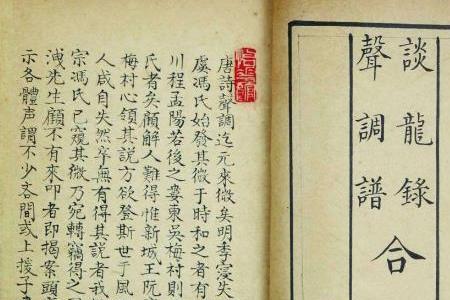 談龍錄
聲調譜
合
唐詩聲調迄元來微矣明季寖失
虞馮氏始發其微于時和之者有
川程孟陽若後之婁東吳梅村則
氏者矣顧解人難得惟新城王阮
梅村心領其説方欲登斯世于風
人咸自失然卒無有得其説者我
宗馮氏已窺其微乃宛轉竊得之
洩先生顧不有來叩者即揭案頭
示各體声調不少吝間或上援子